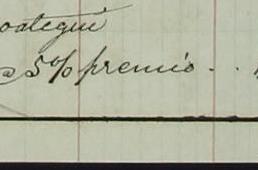 oategui
a 5% premio . .